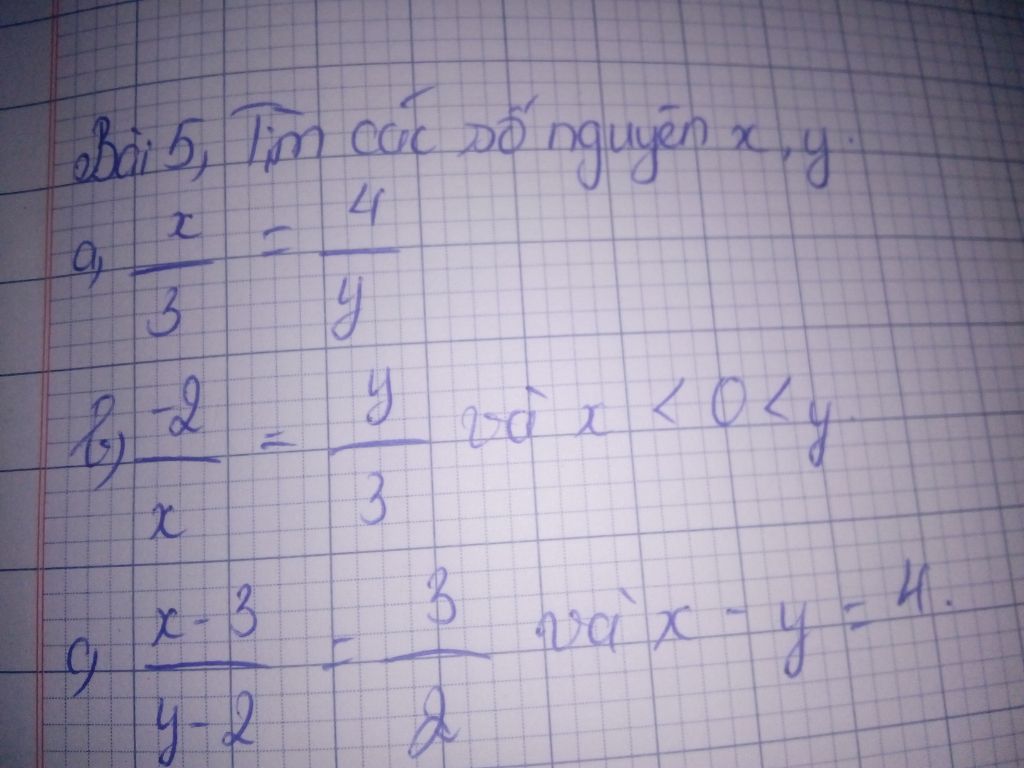 Bài 5, Tìm các số nguyên x, y.
a, x/3 = 4/y
b, -2/x = y/3 và x < 0 < y.
c, x-3/y-2 = 3/2 và x - y = 4.